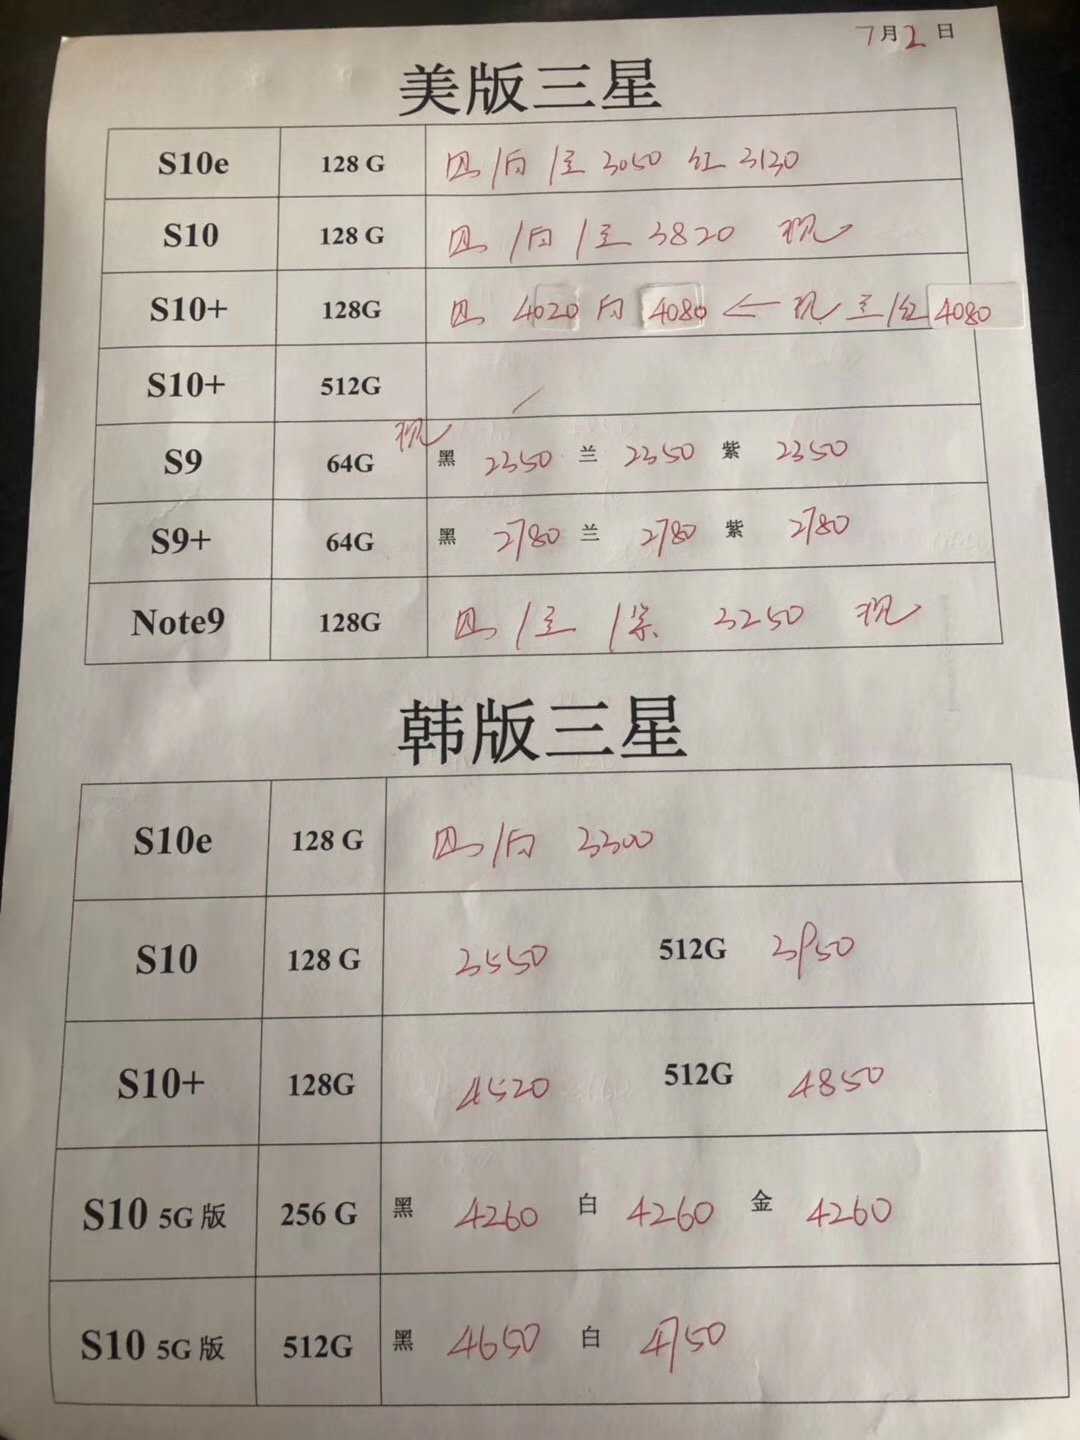 7月2日
美版三星
S10e 128 G 黑/白/兰 3050 红 3130
S10 128 G 黑/白/兰 3820 现
S10+ 128G 黑 4020 白 4080 ← 现 兰/红 4080
S10+ 512G /
S9 64G 现 黑 2350 兰 2350 紫 2350
S9+ 64G 黑 2780 兰 2780 紫 2780
Note9 128G 黑/兰/紫 3250 现
韩版三星
S10e 128 G 黑/白 3300
S10 128 G 3550 512G 3950
S10+ 128G 4520 512G 4850
S10 5G 版 256 G 黑 4260 白 4260 金 4260
S10 5G 版 512G 黑 4650 白 4750